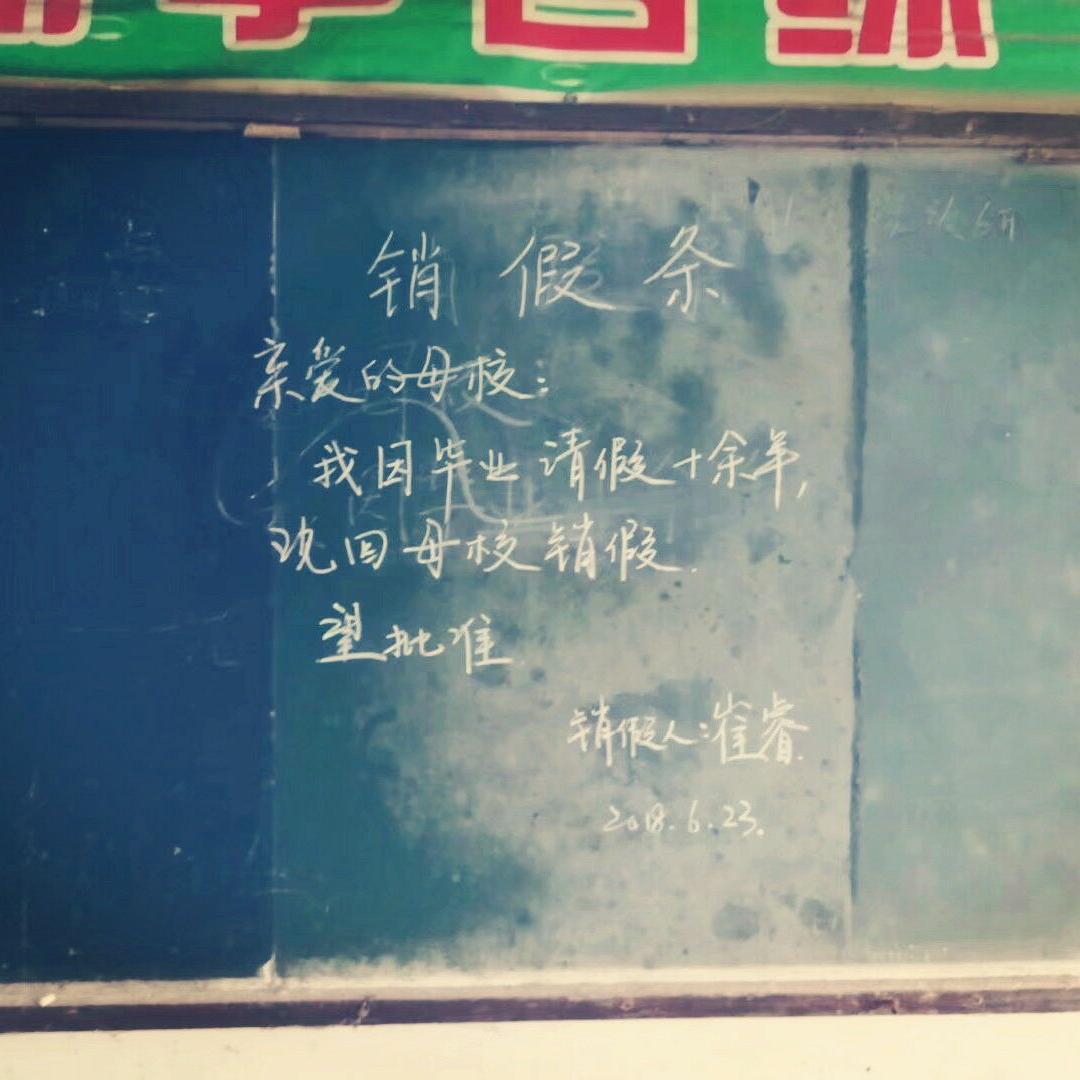 销假条
亲爱的母校:
我因毕业请假十余年,
现回母校销假.
望批准.
销假人:崔睿.
2018.6.23.